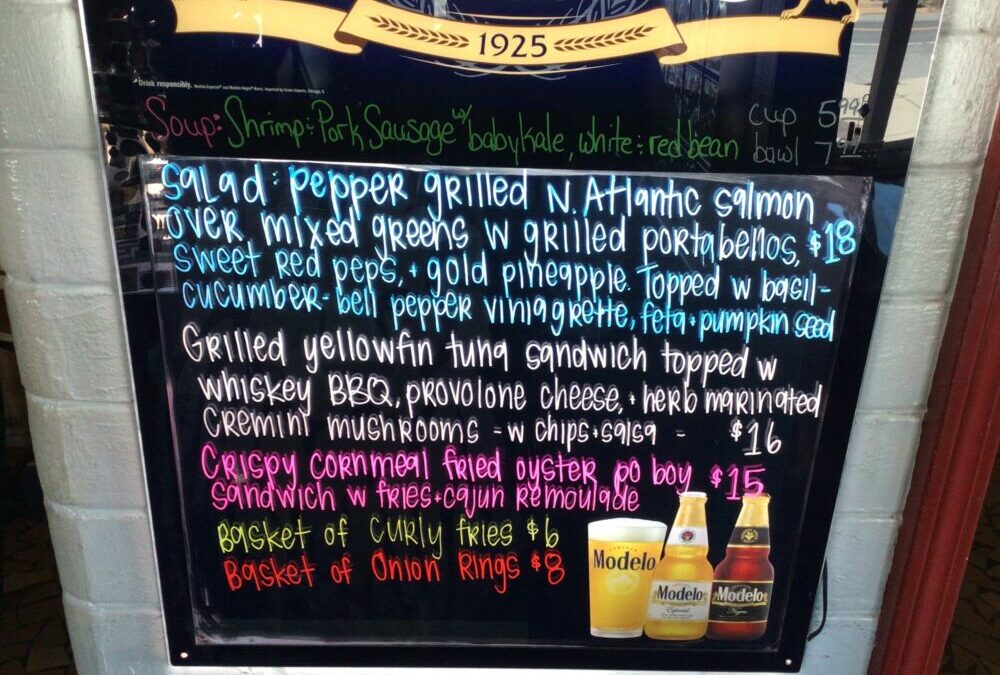 1925
Drink responsibly.
Soup: Shrimp + Pork Sausage w/ baby kale, white + red bean
cup 5.99
bowl 7.99
Salad: pepper grilled N. Atlantic salmon
over mixed greens w grilled portabellos, $18
sweet red peps, + gold pineapple. Topped w basil-
cucumber-bell pepper viniagrette, feta + pumpkin seed
Grilled yellowfin tuna sandwich topped w
whiskey BBQ, provolone cheese, + herb marinated
cremini mushrooms - w chips + salsa - $16
Crispy cornmeal fried oyster po boy $15
sandwich w fries + cajun remoulade
Basket of Curly fries $6
Basket of Onion Rings $8
Modelo
Modelo
Especial
Modelo
Negra